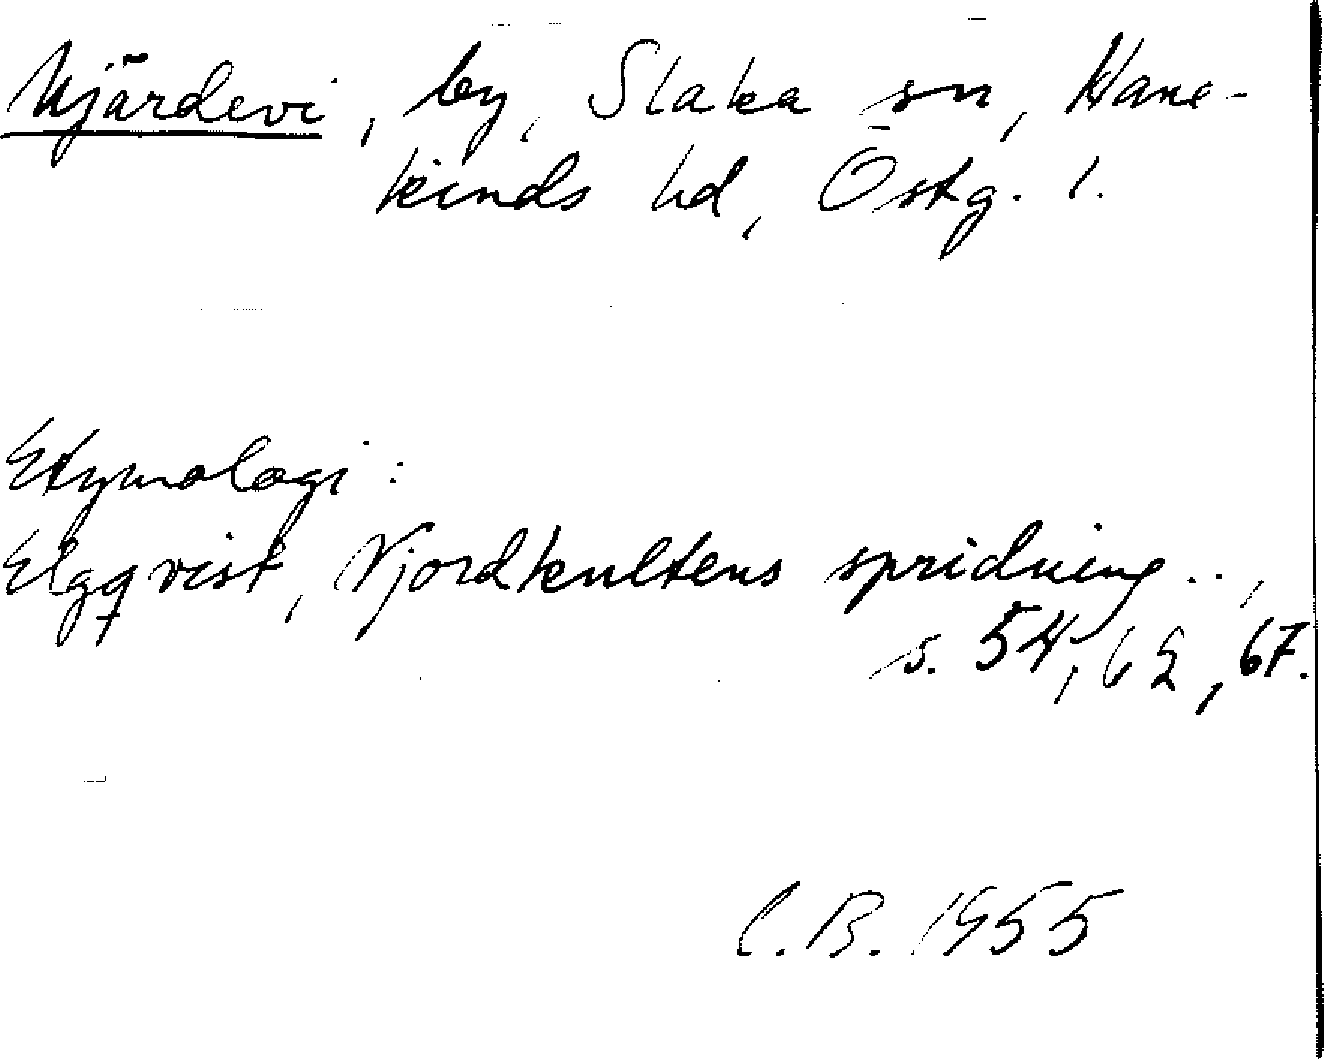 Njärdevi, by, Slaka sn, Hane-
kinds hd, Östg. l.
Etymologi:
Elgqvist, Njordkultens spridning..,
s. 54, 62, 67.
C.B. 1955